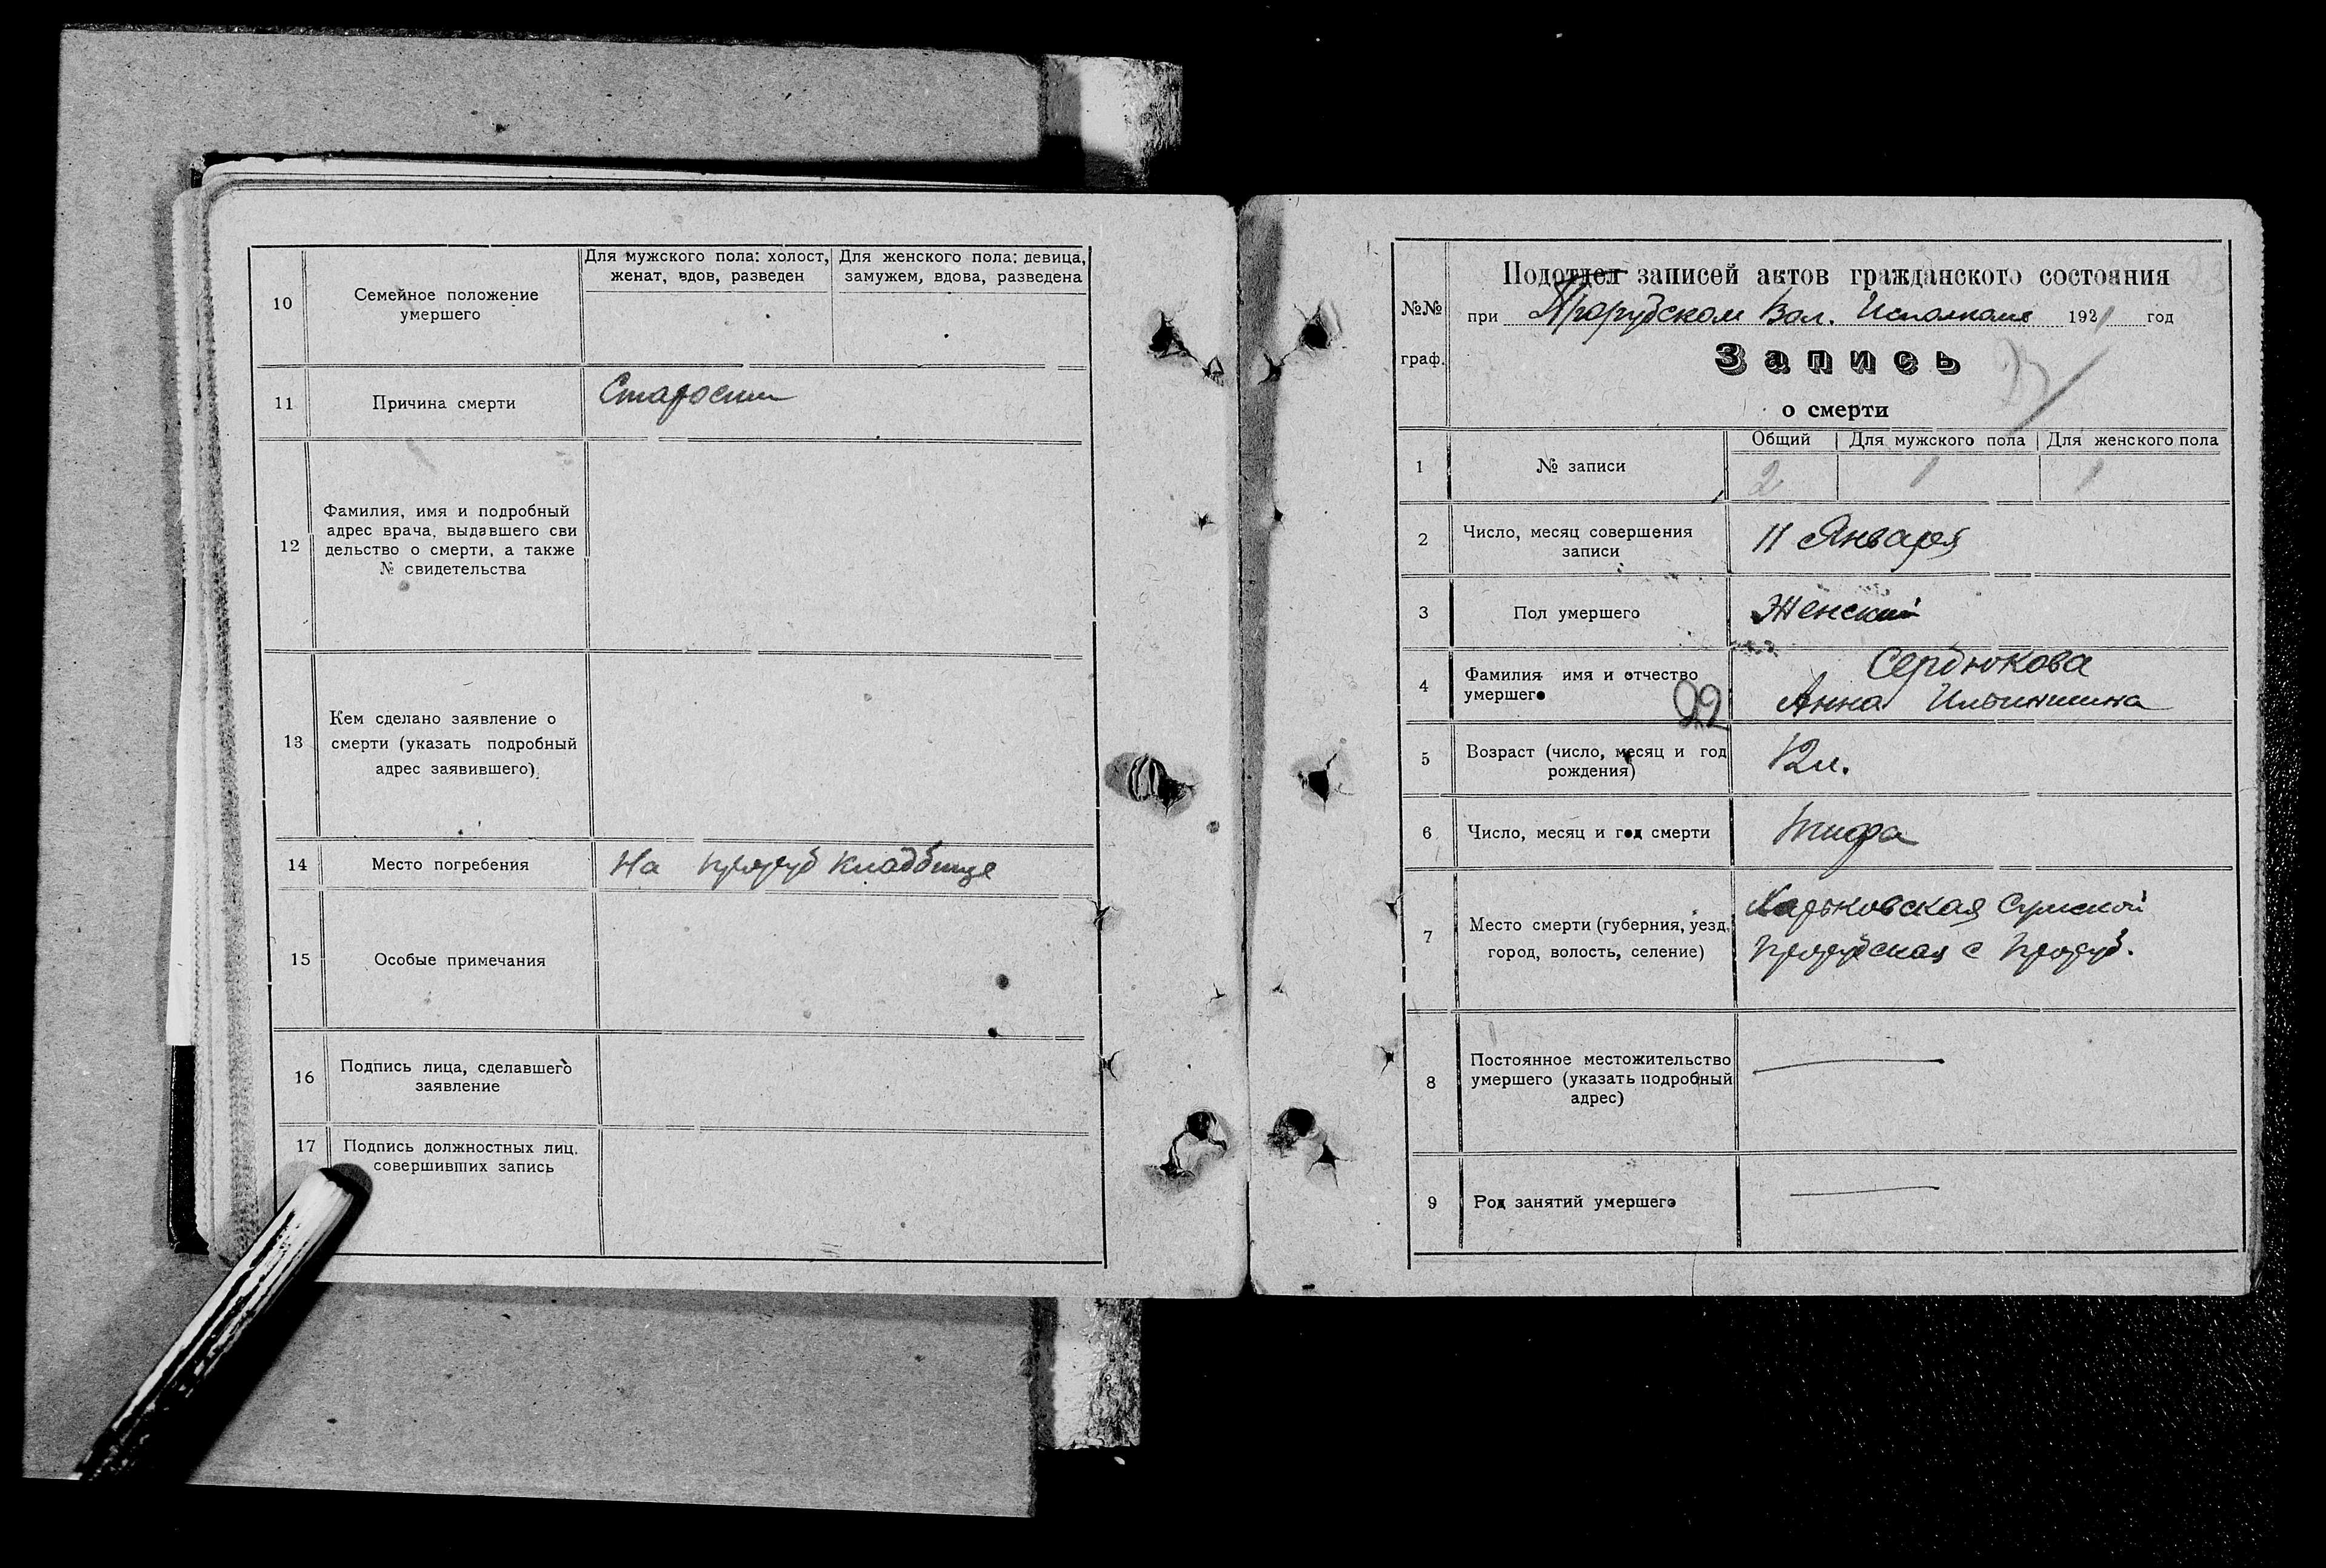 10
Семейное положение
умершего
Для мужского пола: холост,
женат, вдов, разведен
Для женского пола: девица,
замужем, вдова, разведена
11
Причина смерти
Старости
12
Фамилия, имя и подробный
адрес врача, выдавшего сви
дельство о смерти, а также
№ свидетельства
13
Кем сделано заявление о
смерти (указать подробный
адрес заявившего).
14
Место погребения
На проруб кладбище
15
Особые примечания
16
Подпись лица, сделавшего
заявление
17
Подпись должностных лиц.
совершивших запись
№№
граф.
Подотдел записей актов гражданского состояния
при Прорубском Вол. Исполкоме 1921 год
Запись
о смерти
1
№ записи
Общий
Для мужского пола
Для женского пола
2
1
1
2
Число, месяц совершения
записи
11 Января
3
Пол умершего
Женский
4
Фамилия имя и отчество
умершего
22
Сердюкова
Анна Ильинишна
5
Возраст (число, месяц и год
рождения)
12 л.
6
Число, месяц и год смерти
тифа
7
Место смерти (губерния, уезд,
город, волость, селение)
Харьковская Сумской
Прорубская с Проруб.
8
Постоянное местожительство
умершего (указать подробный
адрес)
9
Род занятий умершего